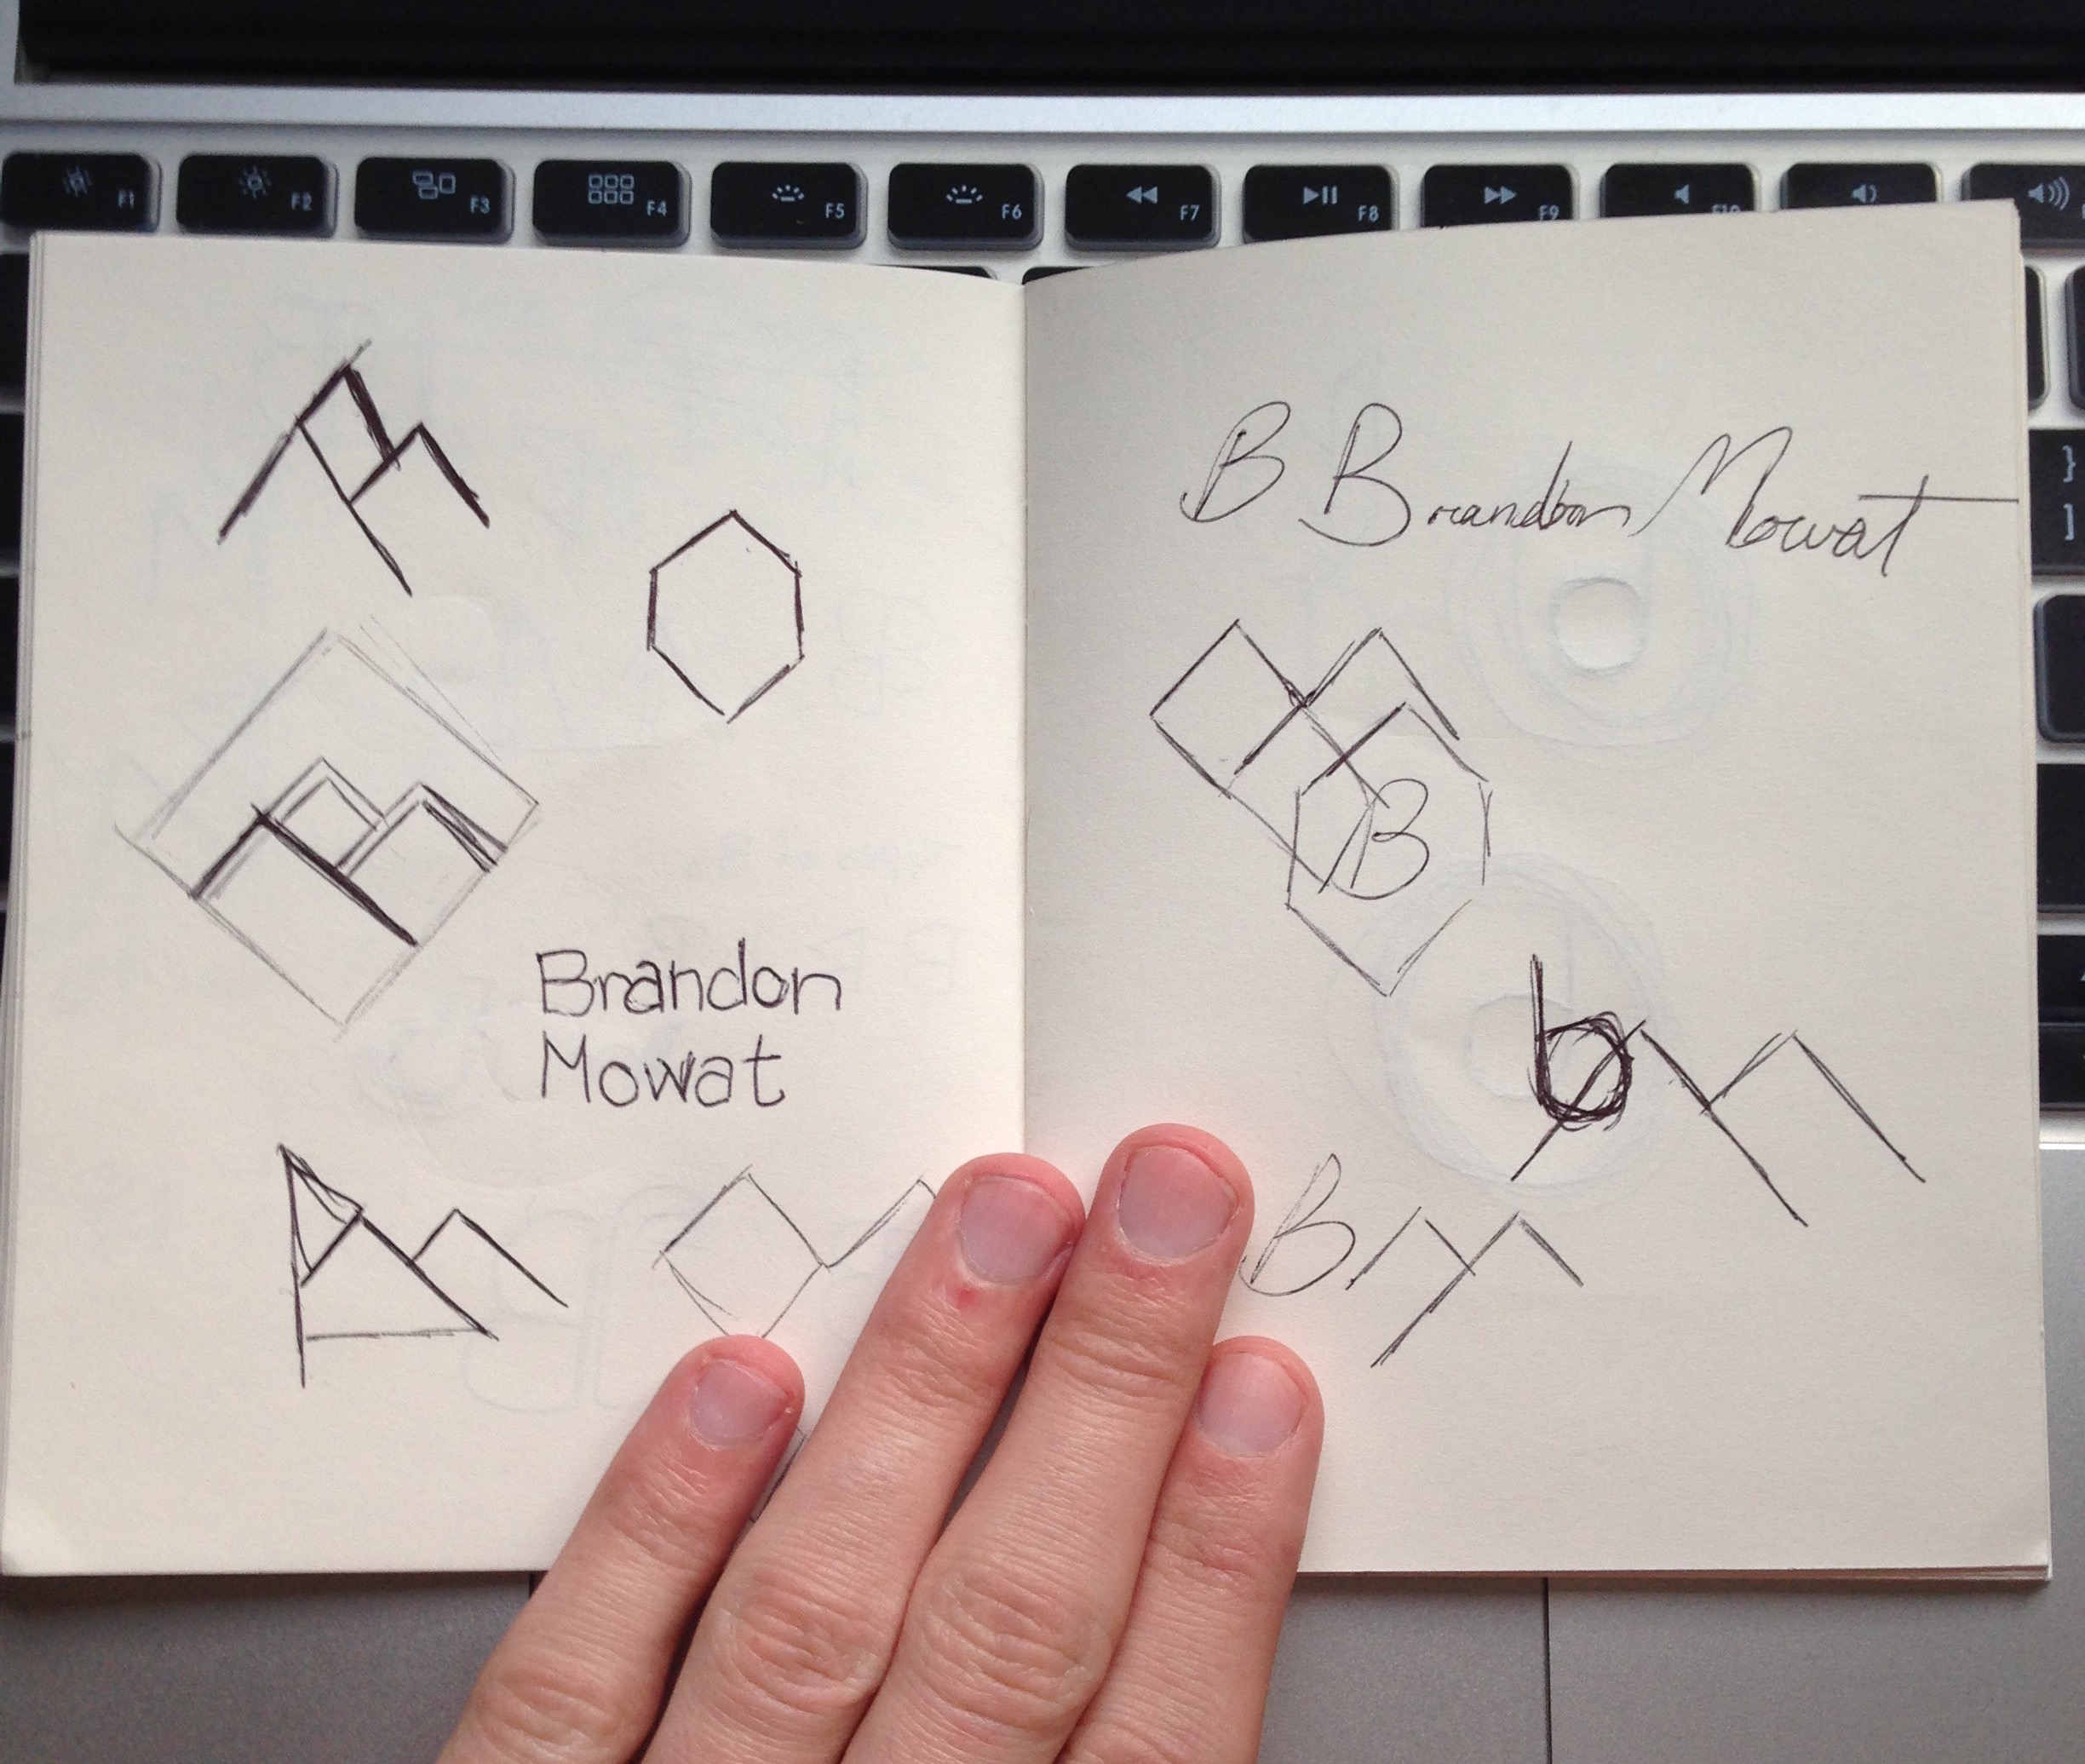 F1 F2 F3 F4 F5 F6 F7 F8 F9
}
]
B Brandon Mowat
B
Brandon
Mowat
bm
BM